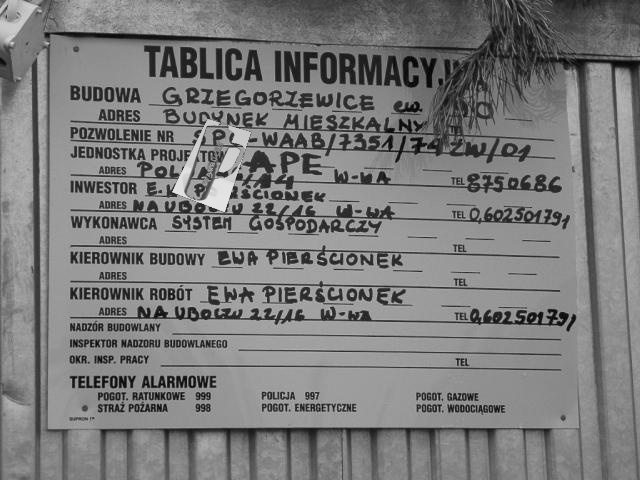 TABLICA INFORMACYJNA
BUDOWA GRZEGORZEWICE ew.
ADRES BUDYNEK MIESZKALNY
POZWOLENIE NR SPEL-WAAB/7351/74 ZW/01
JEDNOSTKA PROJEKTOWA APE
ADRES W-WA TEL 8750686
INWESTOR E. K. PIERŚCIONEK
ADRES NA UBOCZU 22/16 W-WA TEL 0,602501791
WYKONAWCA SYSTEM GOSPODARCZY
ADRES TEL
KIEROWNIK BUDOWY EWA PIERŚCIONEK
ADRES TEL
KIEROWNIK ROBÓT EWA PIERŚCIONEK
ADRES NA UBOCZU 22/16 W-WA TEL 0,602501791
NADZÓR BUDOWLANY
INSPEKTOR NADZORU BUDOWLANEGO
OKR. INSP. PRACY TEL
TELEFONY ALARMOWE
POGOT. RATUNKOWE 999 POLICJA 997 POGOT. GAZOWE
STRAŻ POŻARNA 998 POGOT. ENERGETYCZNE POGOT. WODOCIĄGOWE